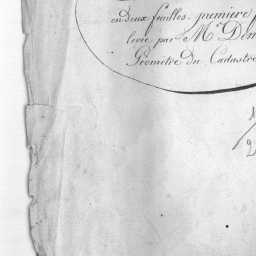 en deux feuilles. première
levée par Mr. Dem
Géomètre du Cadastre
1
2